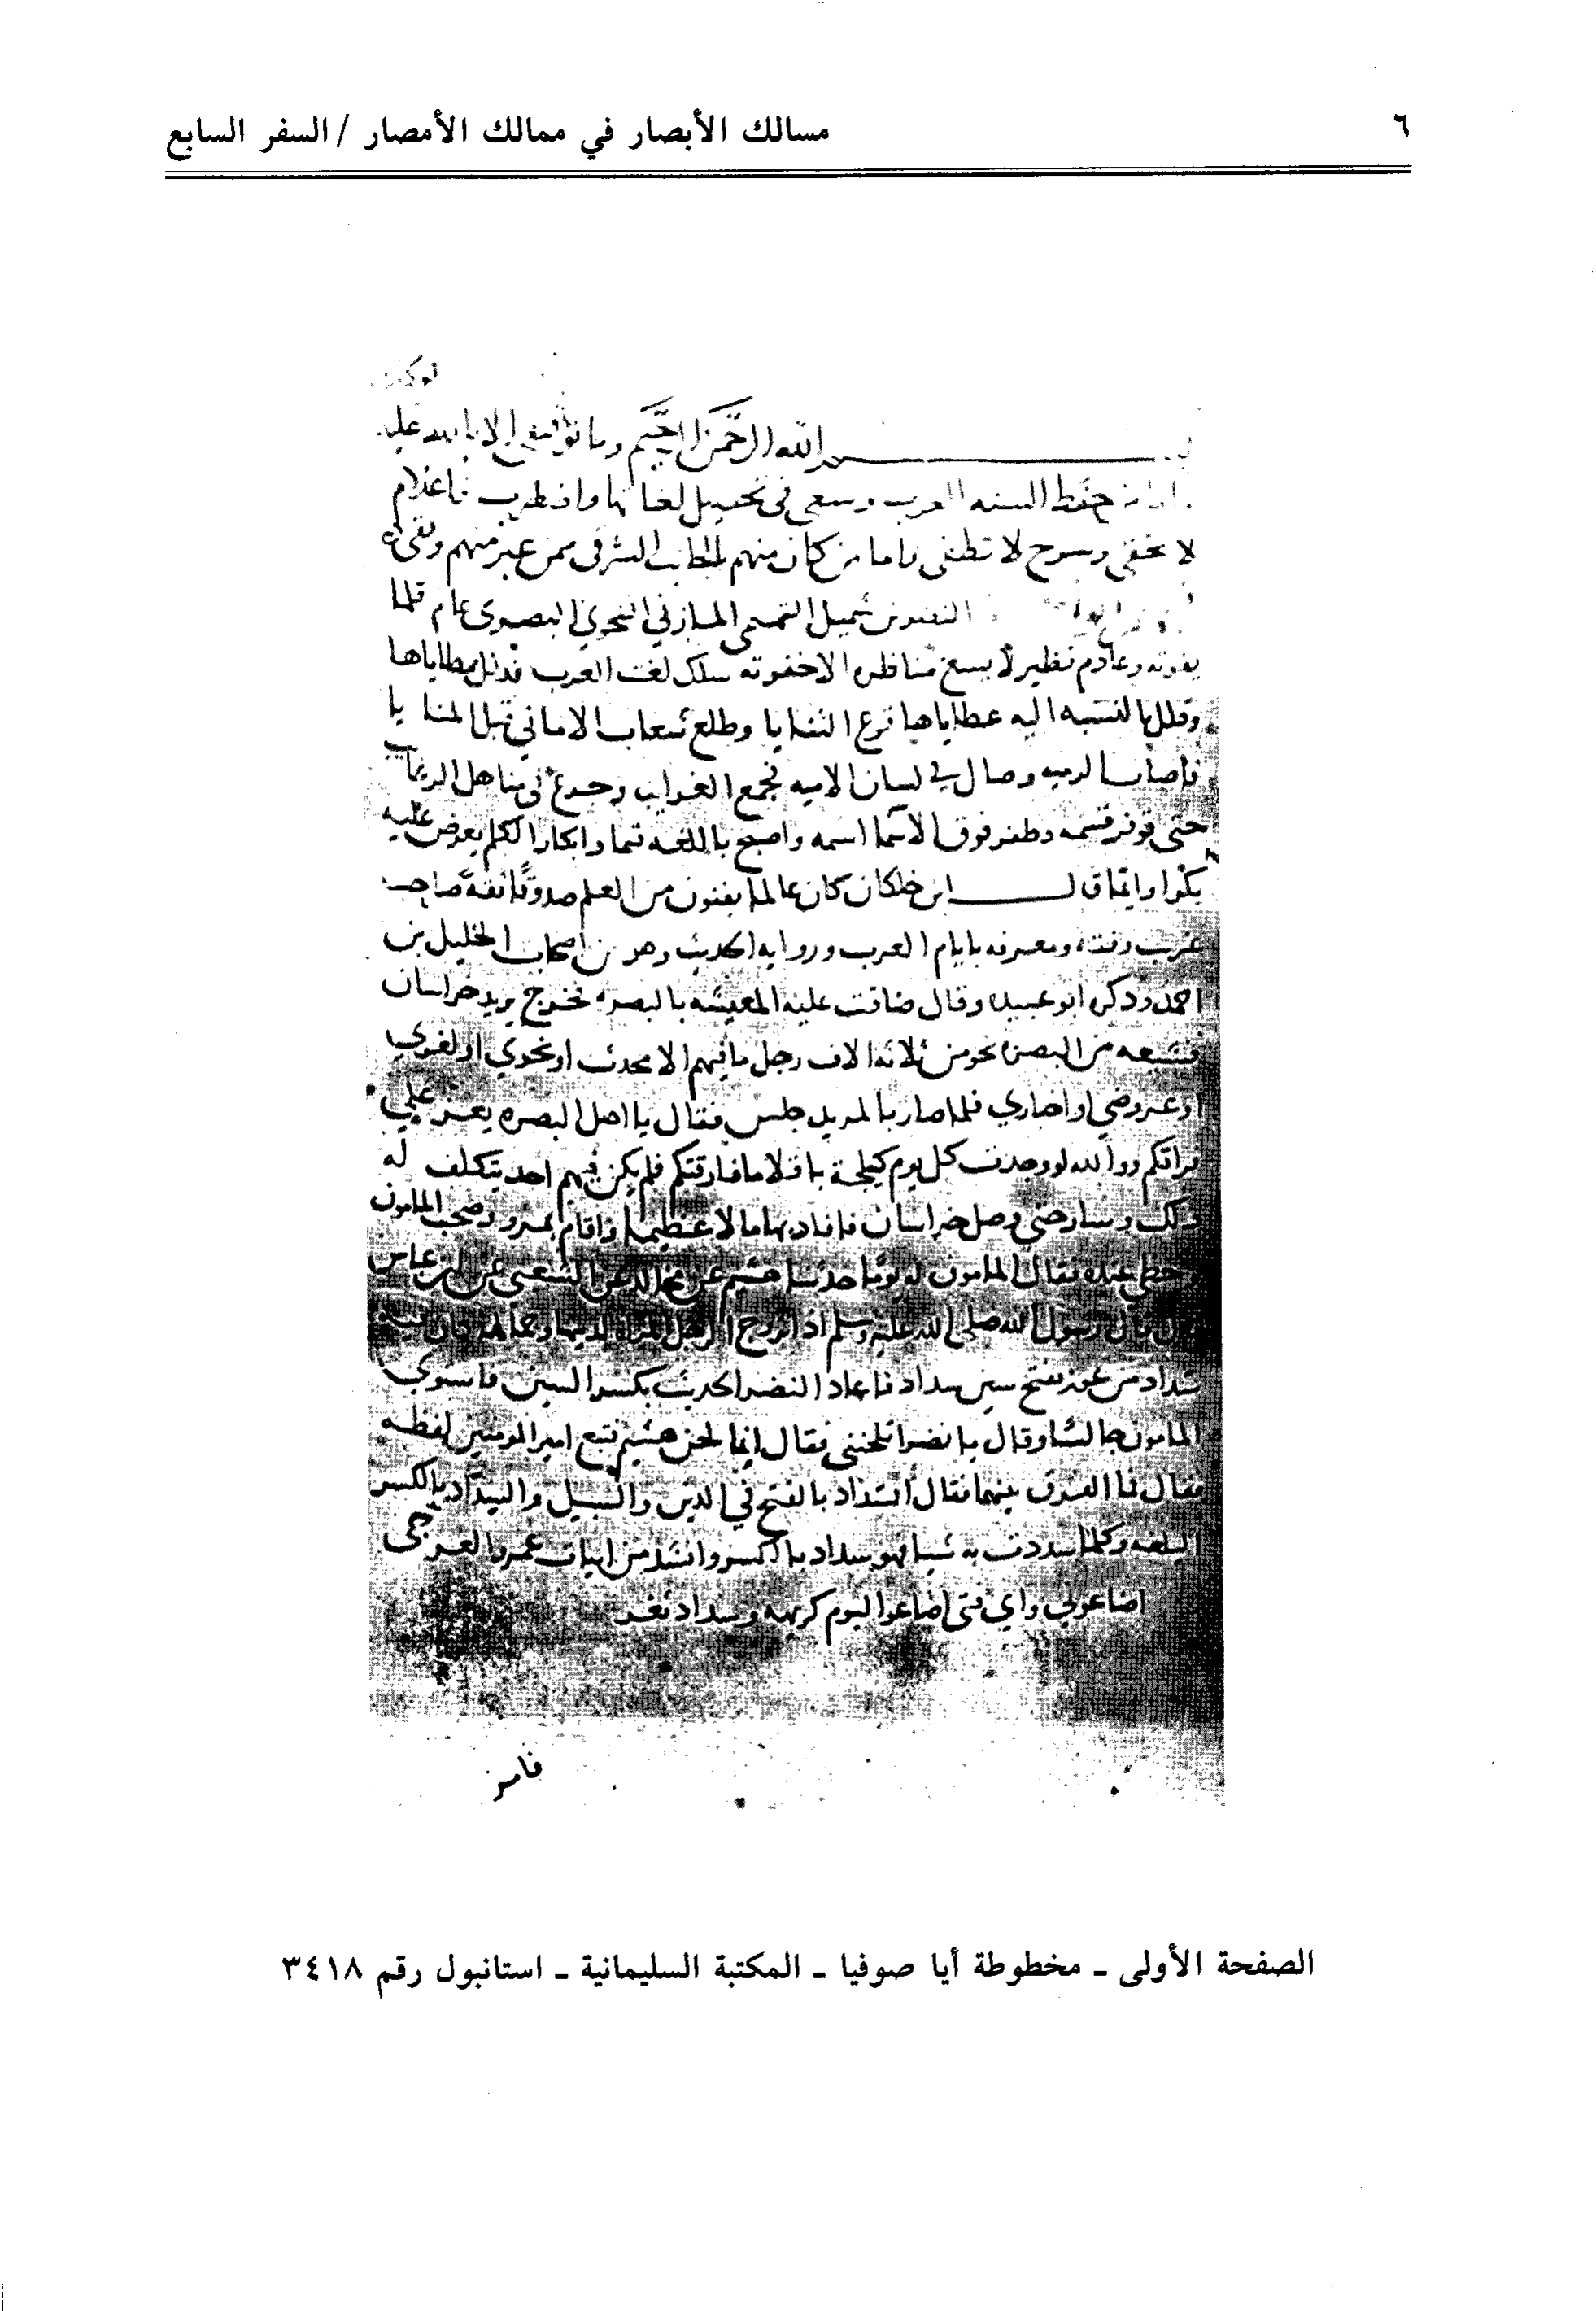 ٦
مسالك الأبصار في ممالك الأمصار / السفر السابع
الله الرحمن الرحيم وما توفيقي الا بالله عليه
حفظ السنه العرب وسعى في تحصيل لغاتها واضطرب فاعلام
لا تخفى وسرح لا تطفى فاما من كان منهم بالجانب الشرقي فممن
النضر بن شميل التميمي المازني النحوي البصري عام قلما
يفوته وعادم نظير لا يسع مناظره الا خفوته سلك لغت العرب فذلل مطاياها
وقلل بالنسبه اليه عطاياها فرع الثنايا وطلع شعاب الاماني قبل المنايا
فاصاب الرميه وصال في لسان الاميه فجمع الغرايب في مناهل الرغايب
حتى توفر قسمه وظفر فوق الاسما اسمه واصبح باللغه قيما وابكار الكلم يعرض عليه
ابن خلكان كان عالما بفنون من العلم صدوقا ثقة صاحب
غريب وفقه ومعرفه بايام العرب وروايه الحديث وهو من اصحاب الخليل بن
احمد وذكره ابو عبيده وقال ضاقت عليه المعيشه بالبصره فخرج يريد خراسان
فشيعه من البصره نحو من ثلاثه الاف رجل ما فيهم الا محدث او نحوي او لغوي
او عروضي او اخباري فلما صار بالمربد جلس فقال يا اهل البصره يعز علي
فراقكم ووالله لو وجدت كل يوم كيلجة باقلا ما فارقتكم فلم يكن فيهم احد يتكلف له
ذلك وسار حتى وصل خراسان فافاد بها مالا عظيما واقام بمرو وصحب المامون
وحظي عنده فقال المامون له يوما حدثنا هشيم عن مجالد عن الشعبي عن ابن عباس
قال قال رسول الله صلى الله عليه وسلم اذا تزوج الرجل المراة لدينها وجمالها كان فيه
سداد من عوز بفتح سين سداد فاعاد النضر الحديث بكسر السين فاستوى
المامون جالسا وقال يا نضر اتلحنني فقال انما لحن هشيم فتبع امير المومنين لفظه
فقال فما الفرق بينهما فقال السداد بالفتح في الدين والسبيل والسداد بالكسر
البلغه وكلما سددت به شيا فهو سداد بالكسر وانشد من ابيات عمرو العرجي
اضاعوني واي فتى اضاعوا ليوم كريهه وسداد ثغر
فامر
الصفحة الأولى - مخطوطة أيا صوفيا - المكتبة السليمانية - استانبول رقم ٣٤١٨